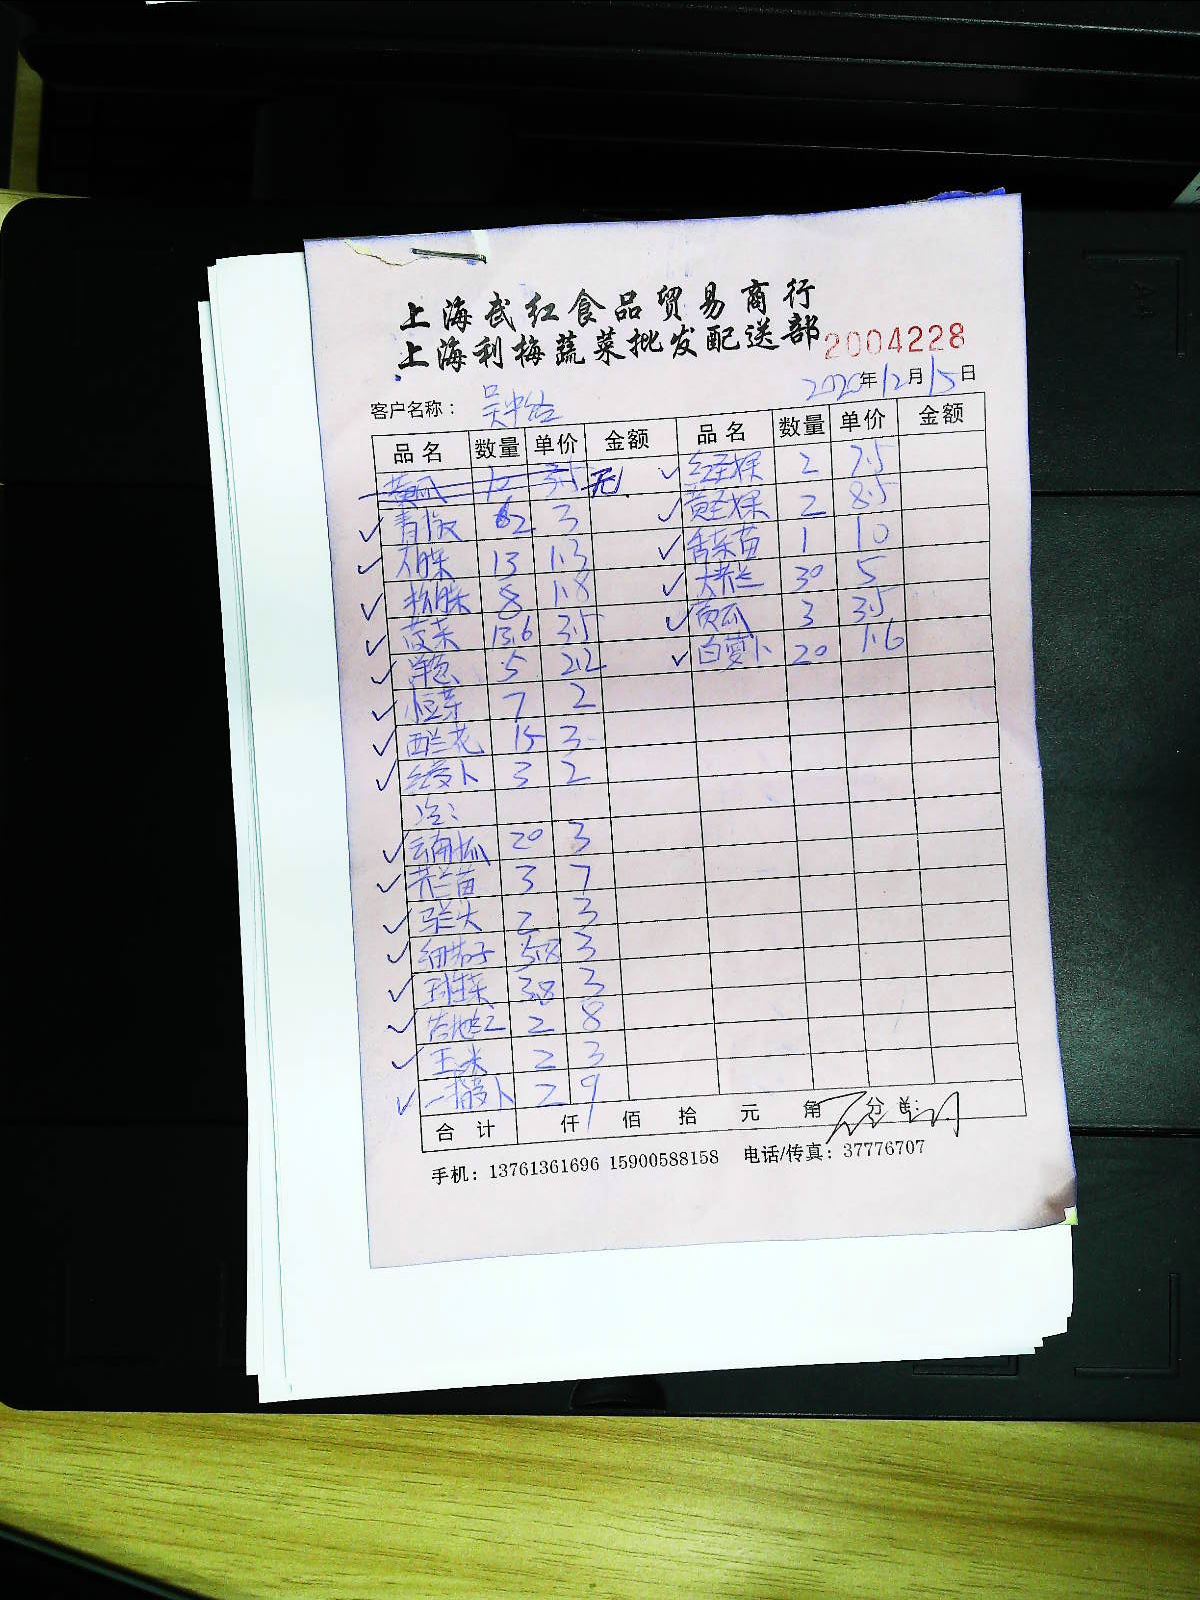 上海武红食品贸易商行
上海利梅蔬菜批发配送部 2004228
2020年12月15日
客户名称：
品名 数量 单价 金额 品名 数量 单价 金额
黄瓜 10 3.5 无 红圣果 2 7.5
青椒 2 3 黄圣果 2 8.5
13 1.3 香菜苗 1 10
8 1.8 大芥兰 30 5
13.6 3.5 黄瓜 3 3.5
洋葱 5 2.2 白萝卜 20 1.6
7 2
西兰花 15 3
红萝卜 3 2
云南瓜 20 3
芥兰苗 3 7
马兰头 2 3
细茄子 3
球生菜 3.8 3
2 8
玉米 2 3
2 9
合计 仟 佰 拾 元 角 分
手机：13761361696 15900588158 电话/传真：37776707